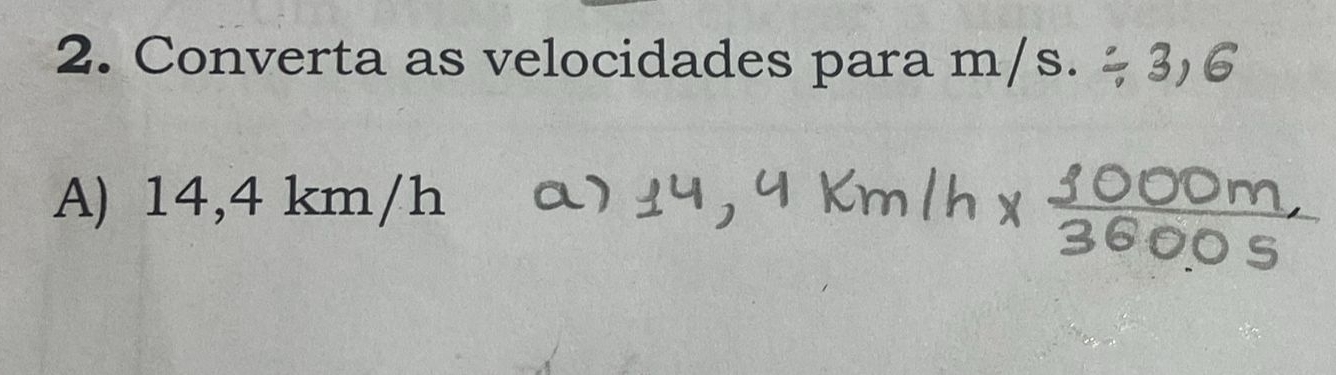 2. Converta as velocidades para m/s. ÷ 3,6
A) 14,4 km/h a) 14,4 Km/h x 1000m
3600 s